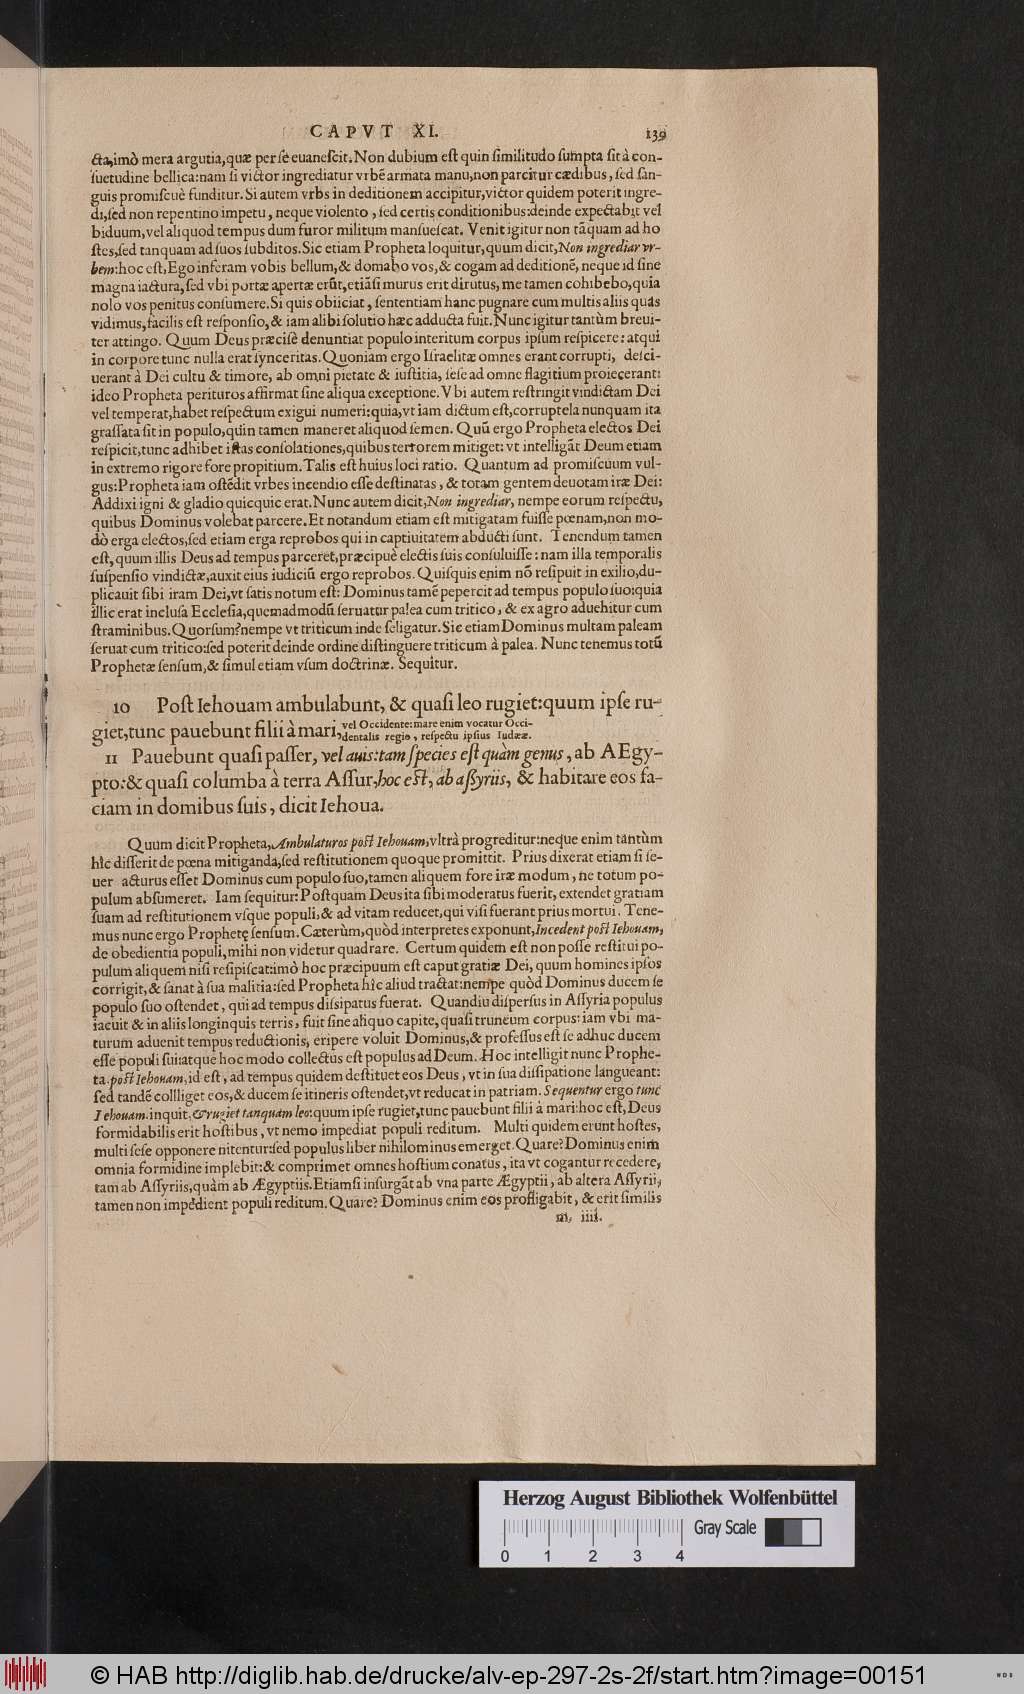 CAPVT XI. 139
cta, imò mera argutia, quæ per ſe euaneſcit. Non dubium eſt quin ſimilitudo ſumpta ſit à con-
ſuetudine bellica: nam ſi victor ingrediatur vrbē armata manu, non parcitur cædibus, ſed ſan-
guis promiſcuè funditur. Si autem vrbs in deditionem accipitur, victor quidem poterit ingre-
di, ſed non repentino impetu, neque violento, ſed certis conditionibus: deinde expectabit vel
biduum, vel aliquod tempus dum furor militum manſueſcat. Venit igitur non tāquam ad ho
ſtes, ſed tanquam ad ſuos ſubditos. Sic etiam Propheta loquitur, quum dicit, Non ingrediar vr-
bem: hoc eſt, Ego inferam vobis bellum, & domabo vos, & cogam ad deditionē, neque id ſine
magna iactura, ſed vbi portæ apertæ erūt, etiāſi murus erit dirutus, me tamen cohibebo, quia
nolo vos penitus conſumere. Si quis obiiciat, ſententiam hanc pugnare cum multis aliis quas
vidimus, facilis eſt reſponſio, & iam alibi ſolutio hæc adducta fuit. Nunc igitur tantùm breui-
ter attingo. Quum Deus præciſè denuntiat populo interitum corpus ipſum reſpicere: atqui
in corpore tunc nulla erat ſynceritas. Quoniam ergo Iſraelitæ omnes erant corrupti, deſci-
uerant à Dei cultu & timore, ab omni pietate & iuſtitia, ſeſe ad omne flagitium proiecerant:
ideo Propheta perituros affirmat ſine aliqua exceptione. Vbi autem reſtringit vindictam Dei
vel temperat, habet reſpectum exigui numeri: quia, vt iam dictum eſt, corruptela nunquam ita
graſſata ſit in populo, quin tamen maneret aliquod ſemen. Quū ergo Propheta electos Dei
reſpicit, tunc adhibet iſtas conſolationes, quibus terrorem mitiget: vt intelligāt Deum etiam
in extremo rigore fore propitium. Talis eſt huius loci ratio. Quantum ad promiſcuum vul-
gus: Propheta iam oſtēdit vrbes incendio eſſe deſtinatas, & totam gentem deuotam iræ Dei:
Addixi igni & gladio quicquic erat. Nunc autem dicit, Non ingrediar, nempe eorum reſpectu,
quibus Dominus volebat parcere. Et notandum etiam eſt mitigatam fuiſſe pœnam, non mo-
dò erga electos, ſed etiam erga reprobos qui in captiuitatem abducti ſunt. Tenendum tamen
eſt, quum illis Deus ad tempus parceret, præcipuè electis ſuis conſuluiſſe: nam illa temporalis
ſuſpenſio vindictæ, auxit eius iudiciū ergo reprobos. Quiſquis enim nō reſipuit in exilio, du-
plicauit ſibi iram Dei, vt ſatis notum eſt: Dominus tamē pepercit ad tempus populo ſuo: quia
illic erat incluſa Eccleſia, quemadmodū ſeruatur palea cum tritico, & ex agro aduehitur cum
ſtraminibus. Quorſum? nempe vt triticum inde ſeligatur. Sic etiam Dominus multam paleam
ſeruat cum tritico: ſed poterit deinde ordine diſtinguere triticum à palea. Nunc tenemus totū
Prophetæ ſenſum, & ſimul etiam vſum doctrinæ. Sequitur.
10 Poſt Iehouam ambulabunt, & quaſi leo rugiet: quum ipſe ru-
giet, tunc pauebunt filii à mari, vel Occidente: mare enim vocatur Occi-
dentalis regio, reſpectu ipſius Iudææ.
11 Pauebunt quaſi paſſer, vel auis: tam ſpecies eſt quàm genus, ab AEgy-
pto: & quaſi columba à terra Aſſur, hoc eſt, ab aſſyriis, & habitare eos fa-
ciam in domibus ſuis, dicit Iehoua.
Quum dicit Propheta, Ambulaturos poſt Iehouam, vltrà progreditur: neque enim tantùm
hîc diſſerit de pœna mitiganda, ſed reſtitutionem quoque promittit. Prius dixerat etiam ſi ſe-
uer acturus eſſet Dominus cum populo ſuo, tamen aliquem fore iræ modum, ne totum po-
pulum abſumeret. Iam ſequitur: Poſtquam Deus ita ſibi moderatus fuerit, extendet gratiam
ſuam ad reſtitutionem vſque populi, & ad vitam reducet, qui viſi fuerant prius mortui. Tene-
mus nunc ergo Prophetę ſenſum. Cæterùm, quòd interpretes exponunt, Incedent poſt Iehouam,
de obedientia populi, mihi non videtur quadrare. Certum quidem eſt non poſſe reſtitui po-
pulum aliquem niſi reſipiſcat: imò hoc præcipuum eſt caput gratiæ Dei, quum homines ipſos
corrigit, & ſanat à ſua malitia: ſed Propheta hîc aliud tractat: nempe quòd Dominus ducem ſe
populo ſuo oſtendet, qui ad tempus diſsipatus fuerat. Quandiu diſperſus in Aſſyria populus
iacuit & in aliis longinquis terris, fuit ſine aliquo capite, quaſi truncum corpus: iam vbi ma-
turum aduenit tempus reductionis, eripere voluit Dominus, & profeſſus eſt ſe adhuc ducem
eſſe populi ſui: atque hoc modo collectus eſt populus ad Deum. Hoc intelligit nunc Prophe-
ta. poſt Iehouam, id eſt, ad tempus quidem deſtituet eos Deus, vt in ſua diſſipatione langueant:
ſed tandē collliget eos, & ducem ſe itineris oſtendet, vt reducat in patriam. Sequentur ergo tunc
Iehouam. inquit, & rugiet tanquam leo: quum ipſe rugiet, tunc pauebunt filii à mari: hoc eſt, Deus
formidabilis erit hoſtibus, vt nemo impediat populi reditum. Multi quidem erunt hoſtes,
multi ſeſe opponere nitentur: ſed populus liber nihilominus emerget. Quare? Dominus enim
omnia formidine implebit: & comprimet omnes hoſtium conatus, ita vt cogantur recedere,
tam ab Aſſyriis, quàm ab Ægyptiis. Etiamſi inſurgāt ab vna parte Ægyptii, ab altera Aſſyrii,
tamen non impedient populi reditum. Quare? Dominus enim eos profligabit, & erit ſimilis
m. iiii.
Herzog August Bibliothek Wolfenbüttel
Gray Scale
0 1 2 3 4
© HAB http://diglib.hab.de/drucke/alv-ep-297-2s-2f/start.htm?image=00151